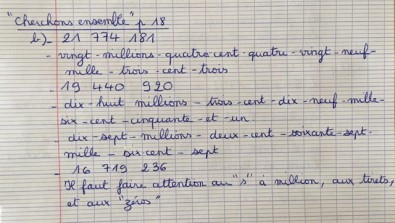 "Cherchons ensemble" p 18
b)- 21 774 181
- vingt-millions-quatre cent-quatre-vingt-neuf-
mille-trois-cent-trois
- 19 440 920
- dix-huit millions-trois-cent-dix-neuf-mille-
six-cent-cinquante-et-un
- dix-sept-millions-deux-cent-soixante-sept-
mille-six-cent-sept
- 16 719 236
Il faut faire attention au "s" à million, aux tirets,
et aux "zéros"